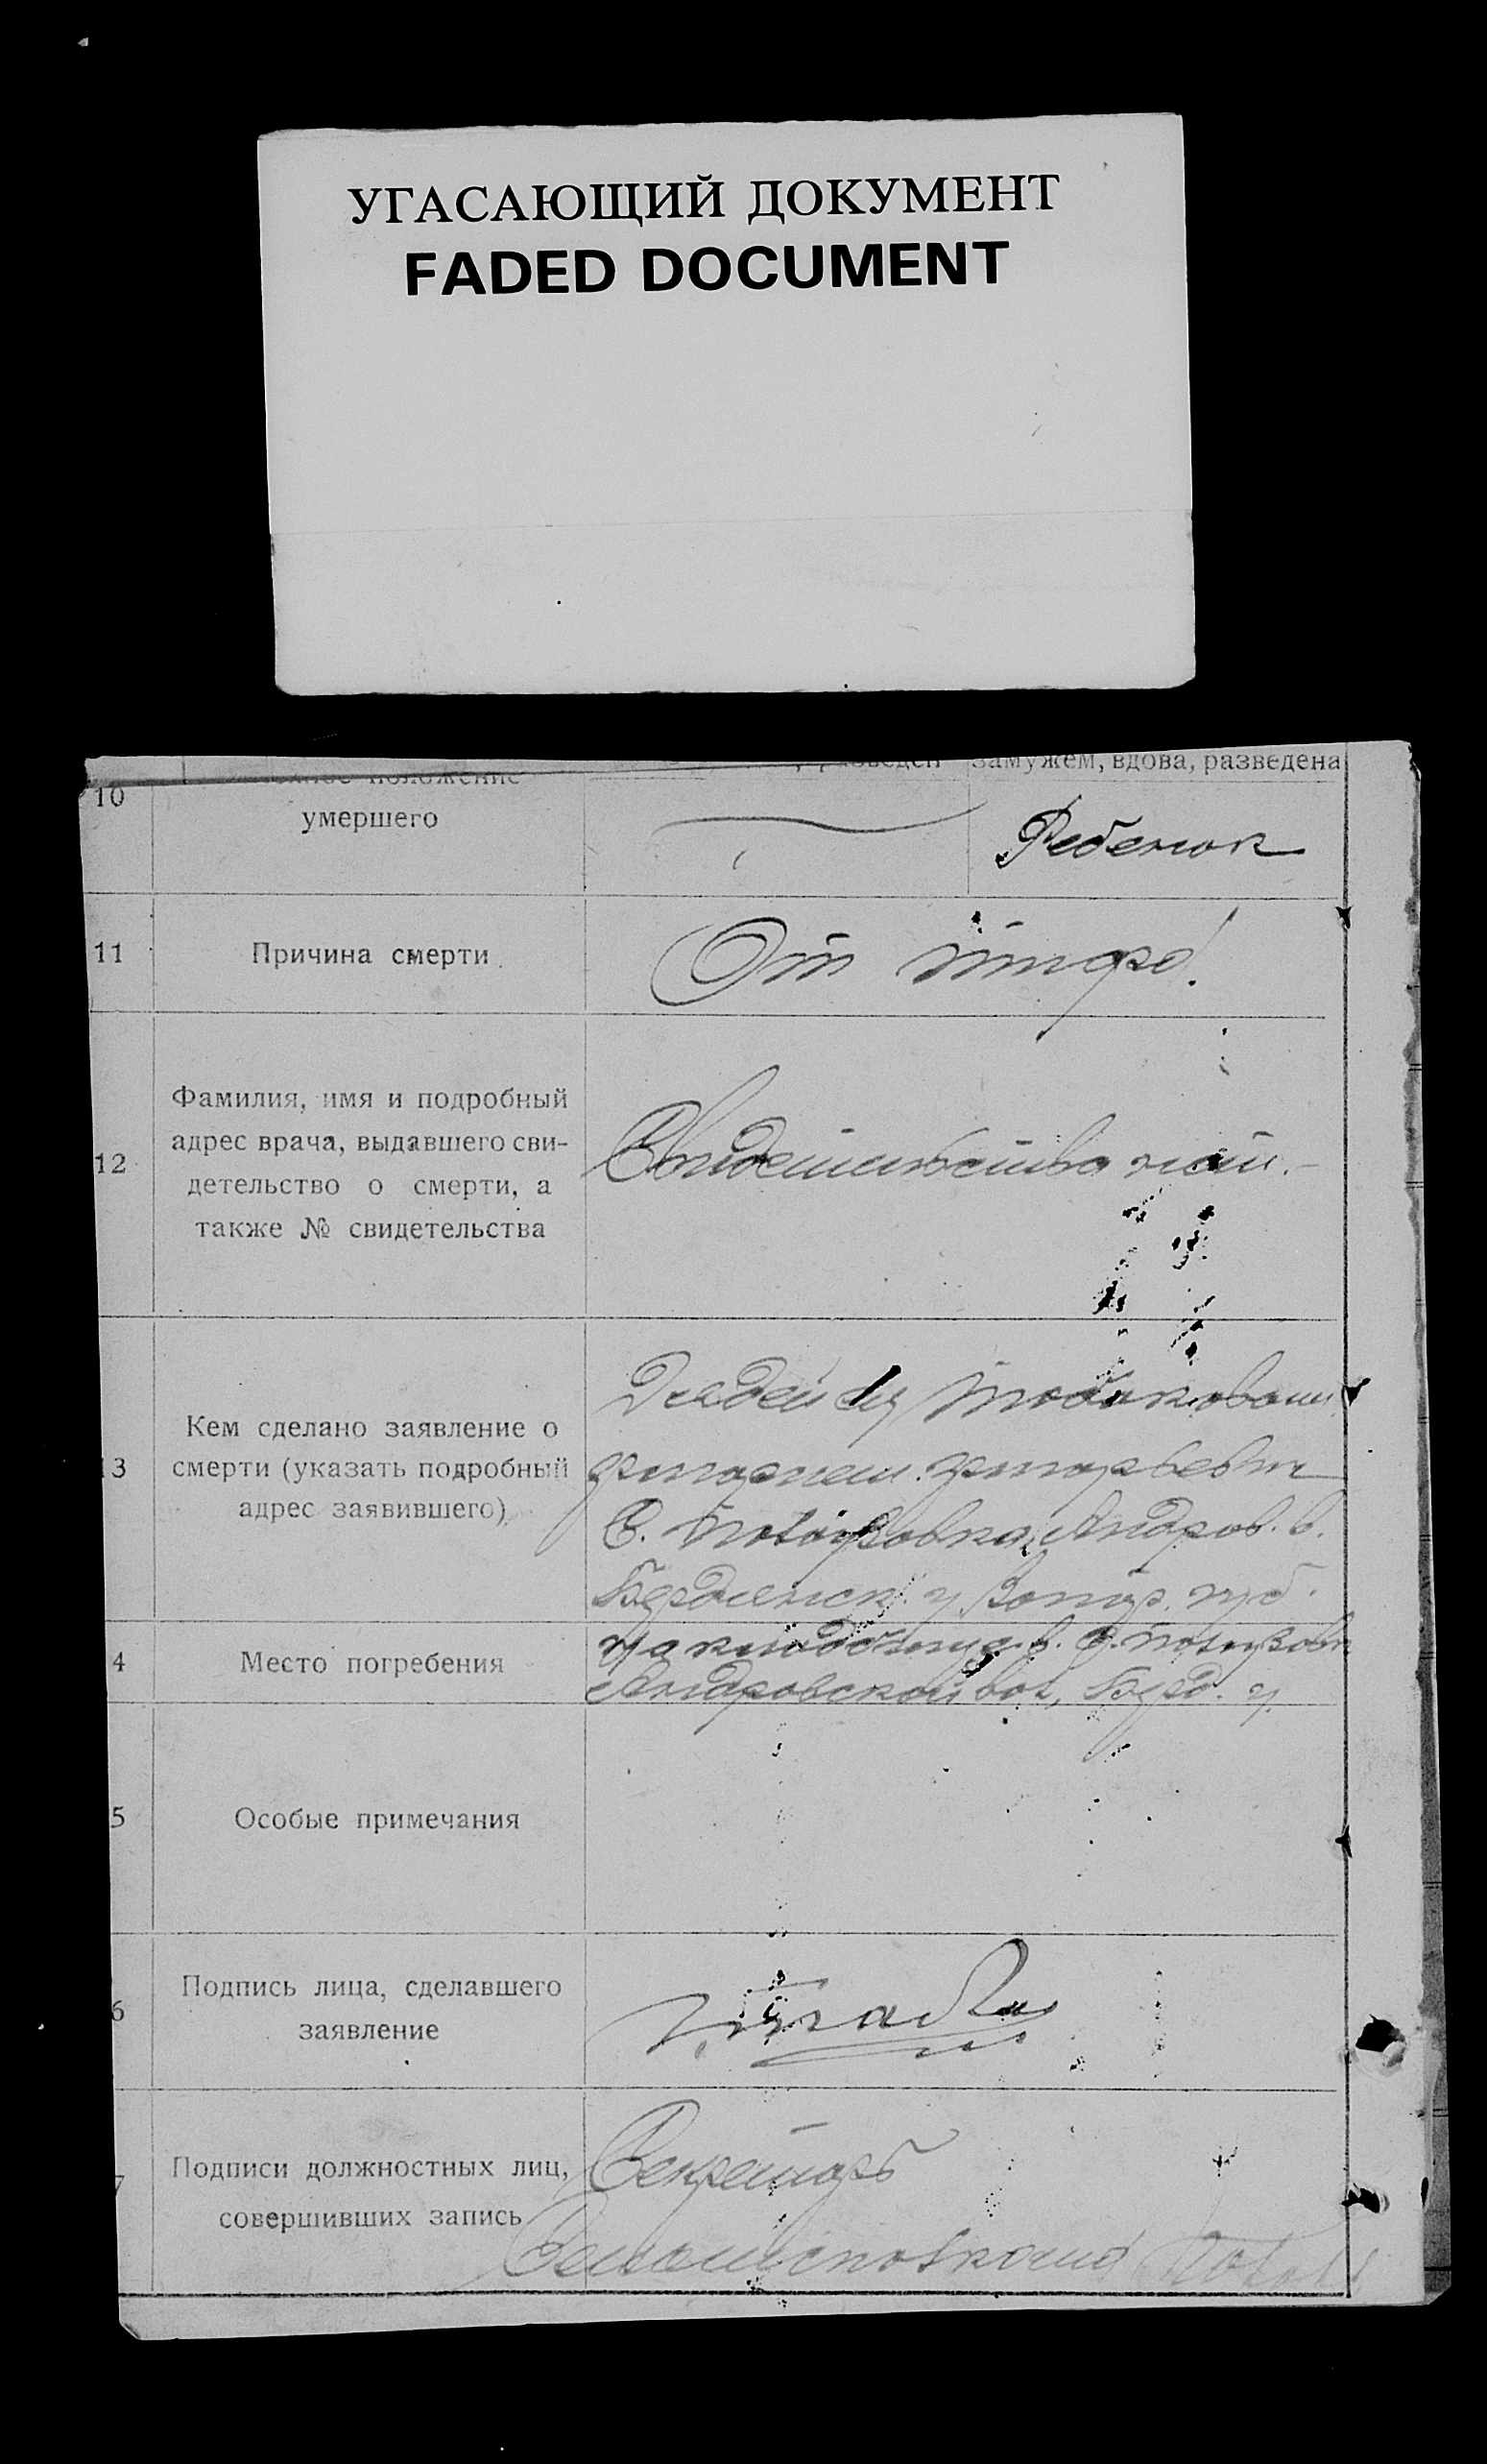 УГАСАЮЩИЙ ДОКУМЕНТ
FADED DOCUMENT
замужем, вдова, разведена
10
положение
умершего
Ребенок
11
Причина смерти
От
12
Фамилия, имя и подробный
адрес врача, выдавшего сви-
детельство о смерти, а
также № свидетельства
Свидетельства нет.
3
Кем сделано заявление о
смерти (указать подробный
адрес заявившего)
Дядей
Григорием Григорьевич
С. Андров. в.
Бердянск. у. Запор. губ.
4
Место погребения
На кладбище в с.
Андровской вол, Берд. у.
5
Особые примечания
6
Подпись лица, сделавшего
заявление
7
Подписи должностных лиц,
совершивших запись
Секретарь